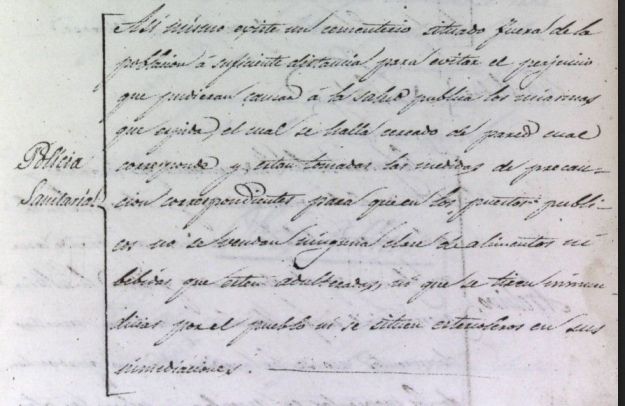 Asi mismo existe un cementerio situado fuera de la
poblacion á suficiente distancia para evitar el perjuicio
que pudieran causar á la salud publica los miasmas
que espida, el cual se halla cercado de pared cual
Policia
corresponde y estan tomadas las medidas de precau-
Sanitaria
cion correspondientes para que en los puestos publi-
cos no se vendan ninguna clase de alimentos ni
bebidas que esten adulteradas, ni que se tiren inmun-
dicias por el pueblo ni se situen estercoleros en sus
inmediaciones.